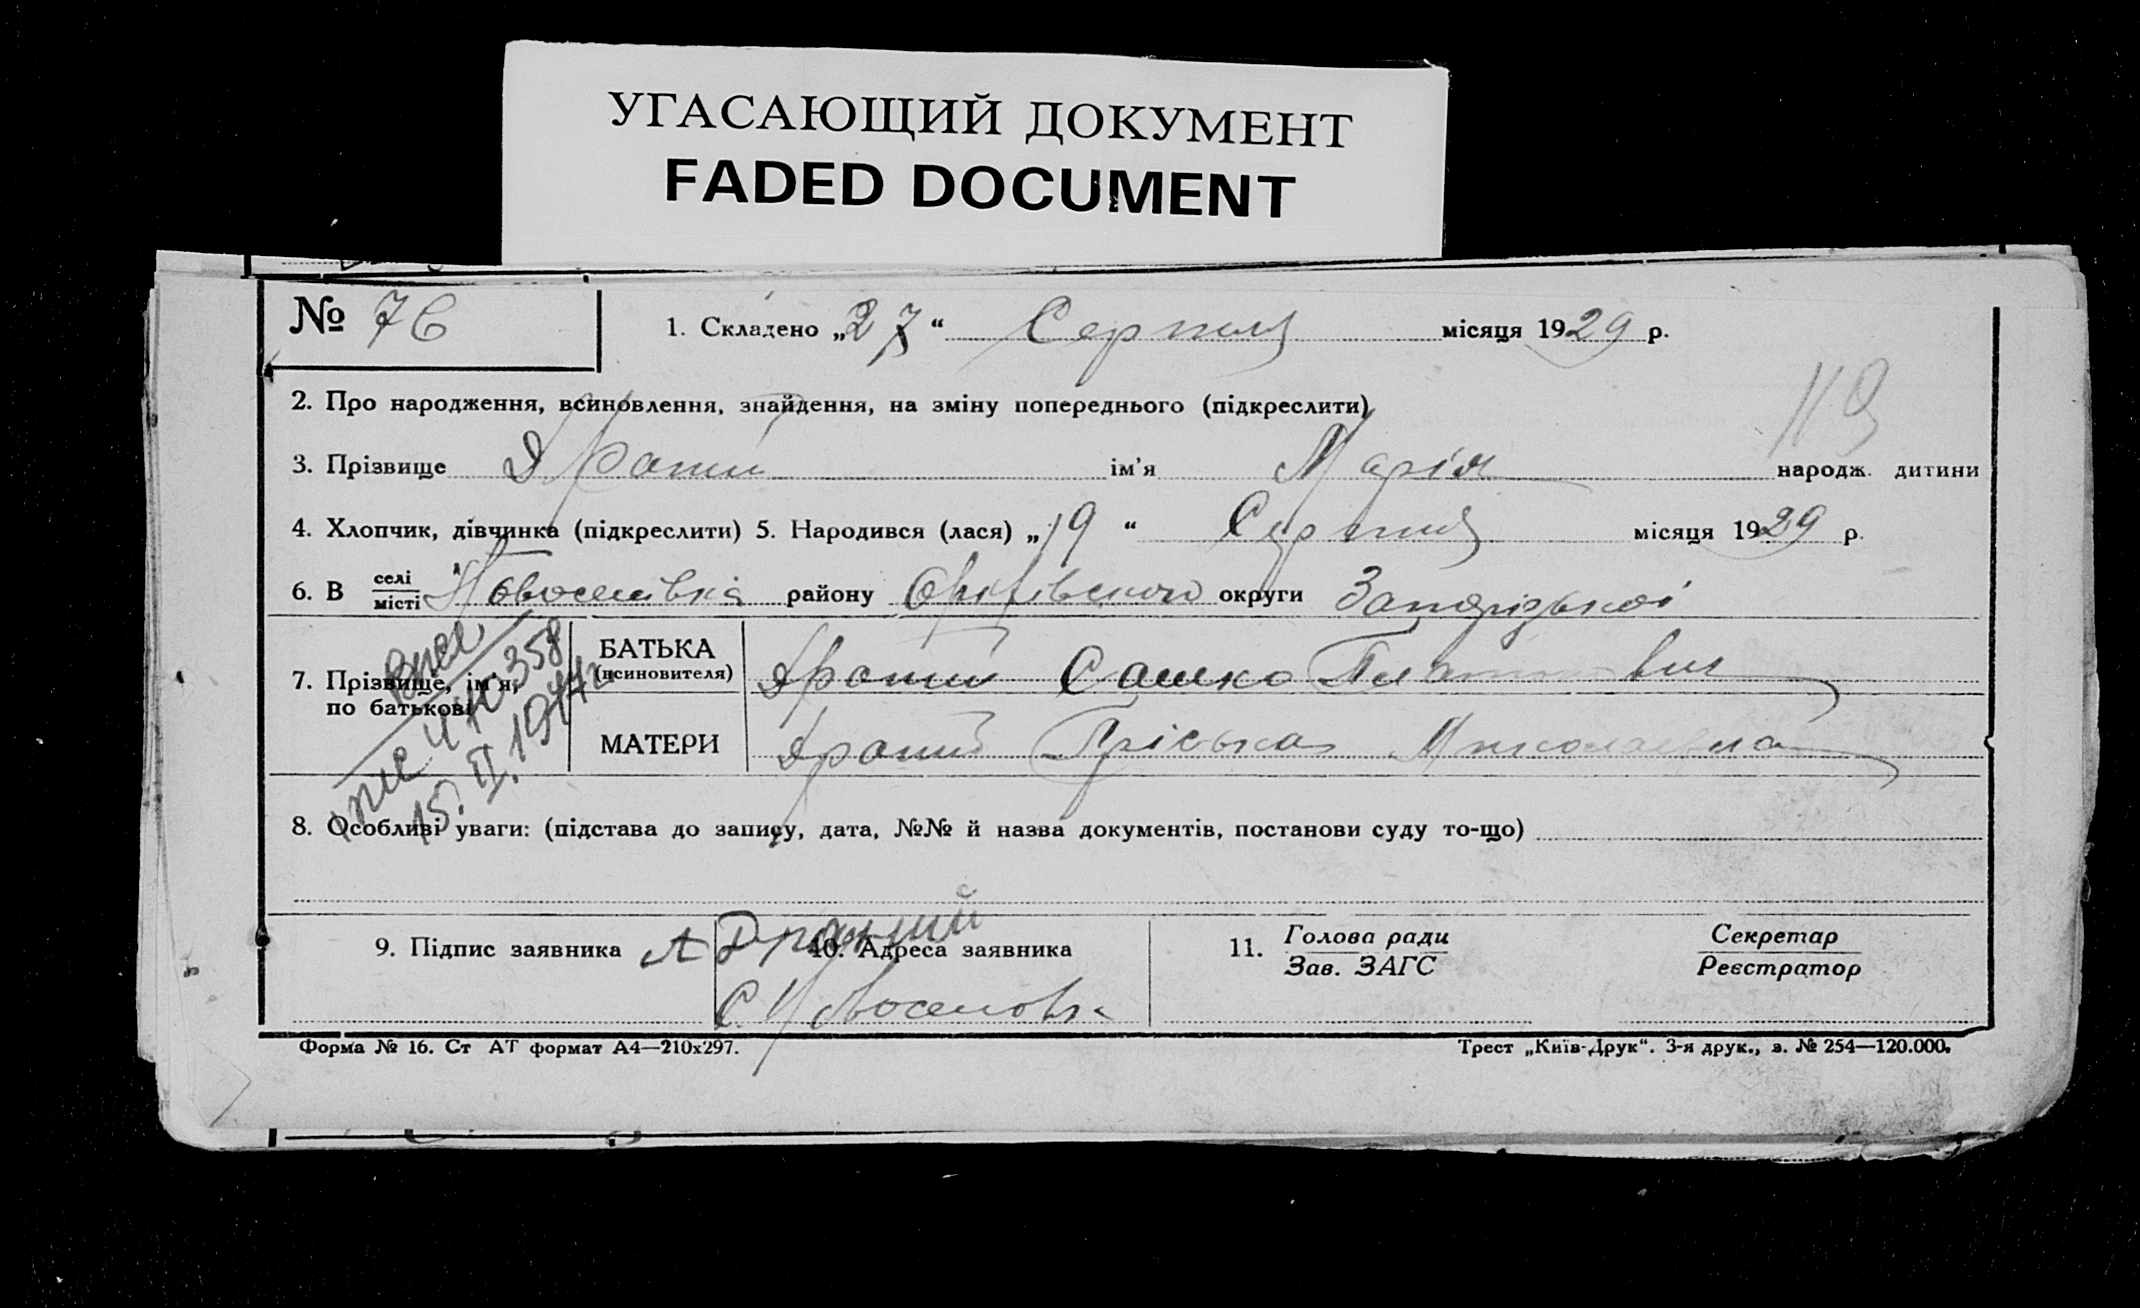 УГАСАЮЩИЙ ДОКУМЕНТ
FADED DOCUMENT
№ 76
1. Складено „27“ Серпня місяця 1929 р.
119
2. Про народження, всиновлення, знайдення, на зміну попереднього (підкреслити)
3. Прізвище Драний ім'я Марія народж. дитини
4. Хлопчик, дівчинка (підкреслити) 5. Народився (лася) „19“ Серпня місяця 1929 р.
6. В селі/місті Новоселівка району Оріхівського округи Запорізької
7. Прізвище, ім'я, по батькові
БАТЬКА (всиновителя) Драний Сашко
МАТЕРИ Драний Пріська Миколаєвна
358
15.II.1944г
8. Особливі уваги: (підстава до запису, дата, №№ й назва документів, постанови суду то-що)
9. Підпис заявника А Драний
10. Адреса заявника
С. Новоселовка
11. Голова ради
Зав. ЗАГС
Секретар
Реєстратор
Форма № 16. Ст АТ формат А4—210х297.
Трест „Київ-Друк“. 3-я друк., з. № 254—120.000.